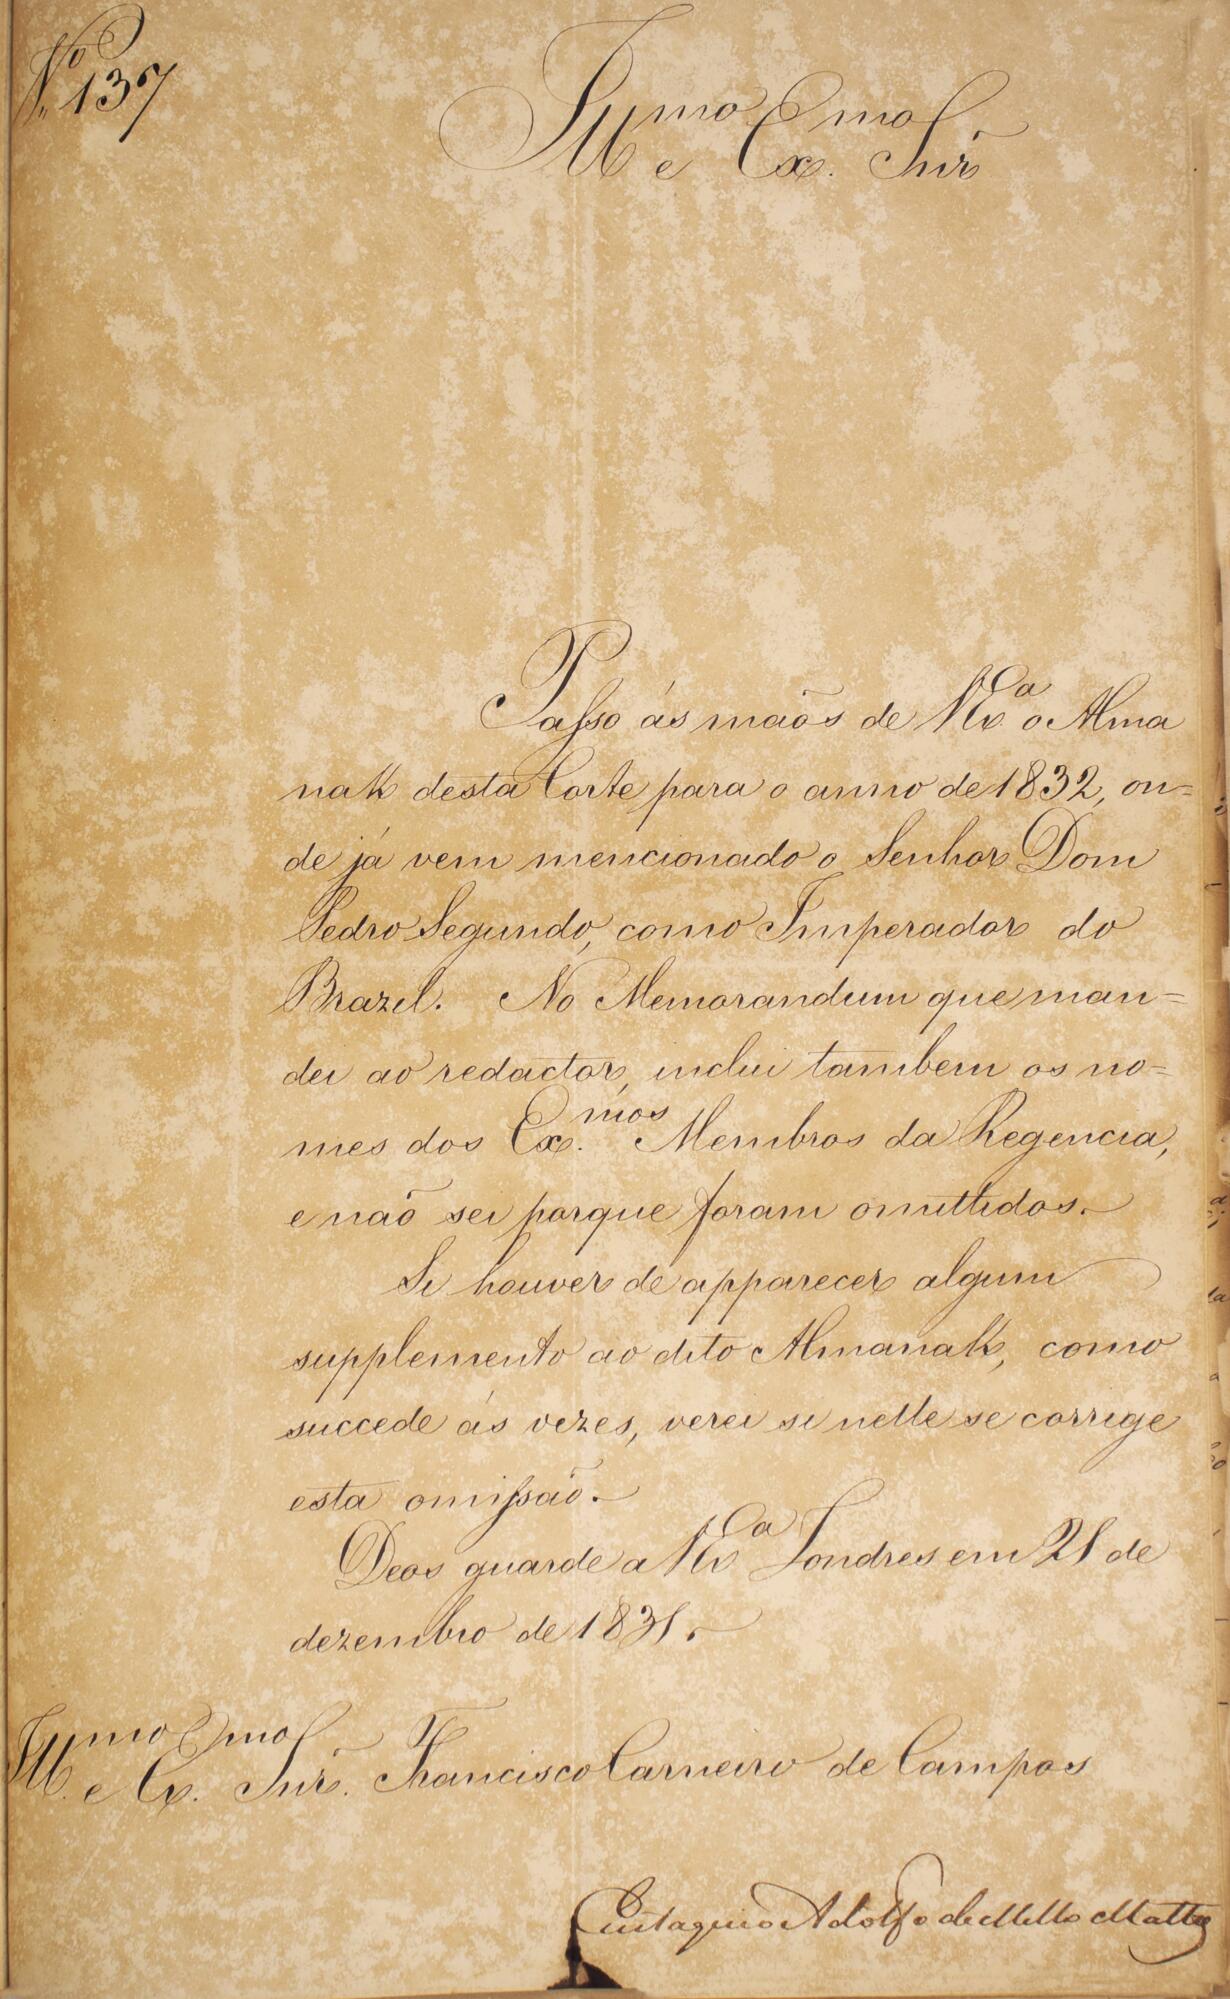 Nº 137
Illmo e Exmo Snr
Passo ás maõs de V Exa o Alma
nak desta Corte para o anno de 1832, on=
de já vem mencionado o Senhor Dom
Pedro Segundo, como Imperador do
Brazil. No Memorandum que man=
dei ao redactor, inclui tambem os no=
mes dos Ex.mos Membros da Regencia,
e naõ sei porque foram omittidos.
Si houver de apparecer algum
supplemento ao dito Almanak, como
succede ás vezes, verei si nelle se corrige
esta omissaõ.
Deos guarde a V Exa Londres em 21 de
dezembro de 1831.
Illmo e Exmo Snr. Francisco Carneiro de Campos
Eustaquio Adolfo de Mello Mattos